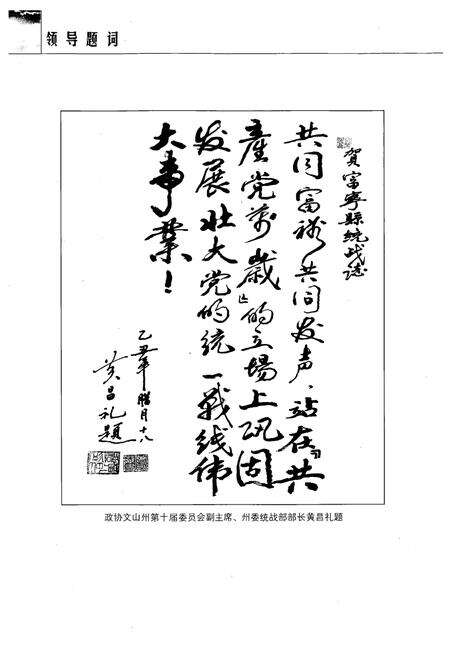 领导题词
贺富寧縣統战誌
共同富裕共同发声，站在“共
產党萬歲”的立場上巩固
发展壮大党的统一戰线伟
大事業！
乙丑年腊月十八
黄昌礼題
政协文山州第十届委员会副主席、州委统战部部长黄昌礼题